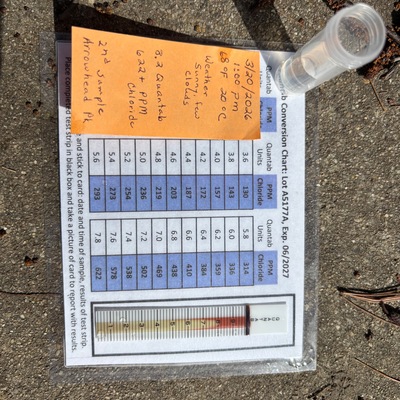 Conversion Chart: Lot A5177A, Exp. 06/2027
3/20/2026
1:00 pm
68 °F 20 °C
Weather
Sunny, few
clouds
8.2 Quantab
622+ PPM
Chloride
2nd sample
Arrowhead Pk
Quantab PPM Quantab PPM
Units Chloride Units Chloride
3.6 130 5.8 314
3.8 143 6.0 336
4.0 157 6.2 359
4.2 172 6.4 384
4.4 187 6.6 410
4.6 203 6.8 438
4.8 219 7.0 469
5.0 236 7.2 502
5.2 254 7.4 538
5.4 273 7.6 578
5.6 293 7.8 622
1 2 3 4 5 6 7
and stick to card: date and time of sample, results of test strip.
Place completed test strip in black box and take a picture of card to report with results.